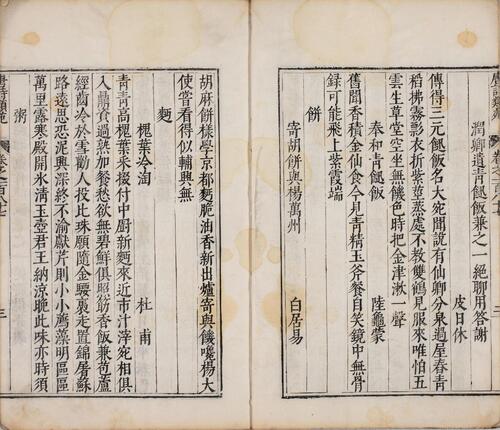 潤卿遺青䭀飯兼之一絕聊用答謝
皮日休
傳得三元䭀飯名大宛聞說有仙卿分泉過屋舂青
稻拂霧影衣折紫莖蒸處不教雙鶴見服來唯怕五
雲生草堂空坐無饑色時把金津漱一聲
奉和青䭀飯 陸龜蒙
舊聞香積金仙食今見青精玉斧餐自笑鏡中無骨
録可能飛上紫霞端
餅
寄胡餅與楊萬州 白居易
胡麻餅樣學京都麵脆油香新出爐寄與饑嚵楊大
使嘗看得似輔興無
麵
槐葉冷淘 杜甫
青青高槐葉采掇付中廚新麵來近市汁滓宛相俱
入鼎資過熟加餐愁欲無碧鮮俱照筯香飯兼苞蘆
經齒冷於雪勸人投此珠願隨金騕褭走置錦屠蘇
路遠思恐泥興深終不渝獻芹則小小薦藻明區區
萬里露寒殿開氷清玉壺君王納涼晚此味亦時須
粥
三